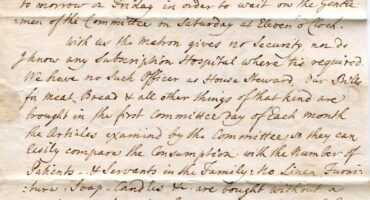 to morrow or Friday in order to wait on the Gentle-
=men of the Committee on Saturday at Eleven o'Clock.
With us the Matron gives no Security nor do
I know any Subscription Hospital where tis required
We have no Such Officer as House Steward Our Bills
for Meat, Bread & all other things of that kind are
brought in the first Committee Day of Each Month
the Articles examind by the Committee, so they can
Easily compare the Consumption with the Number of
Patients & Servants in the Family; No Linen Furni-
=ture Soap Candles & are bought without a